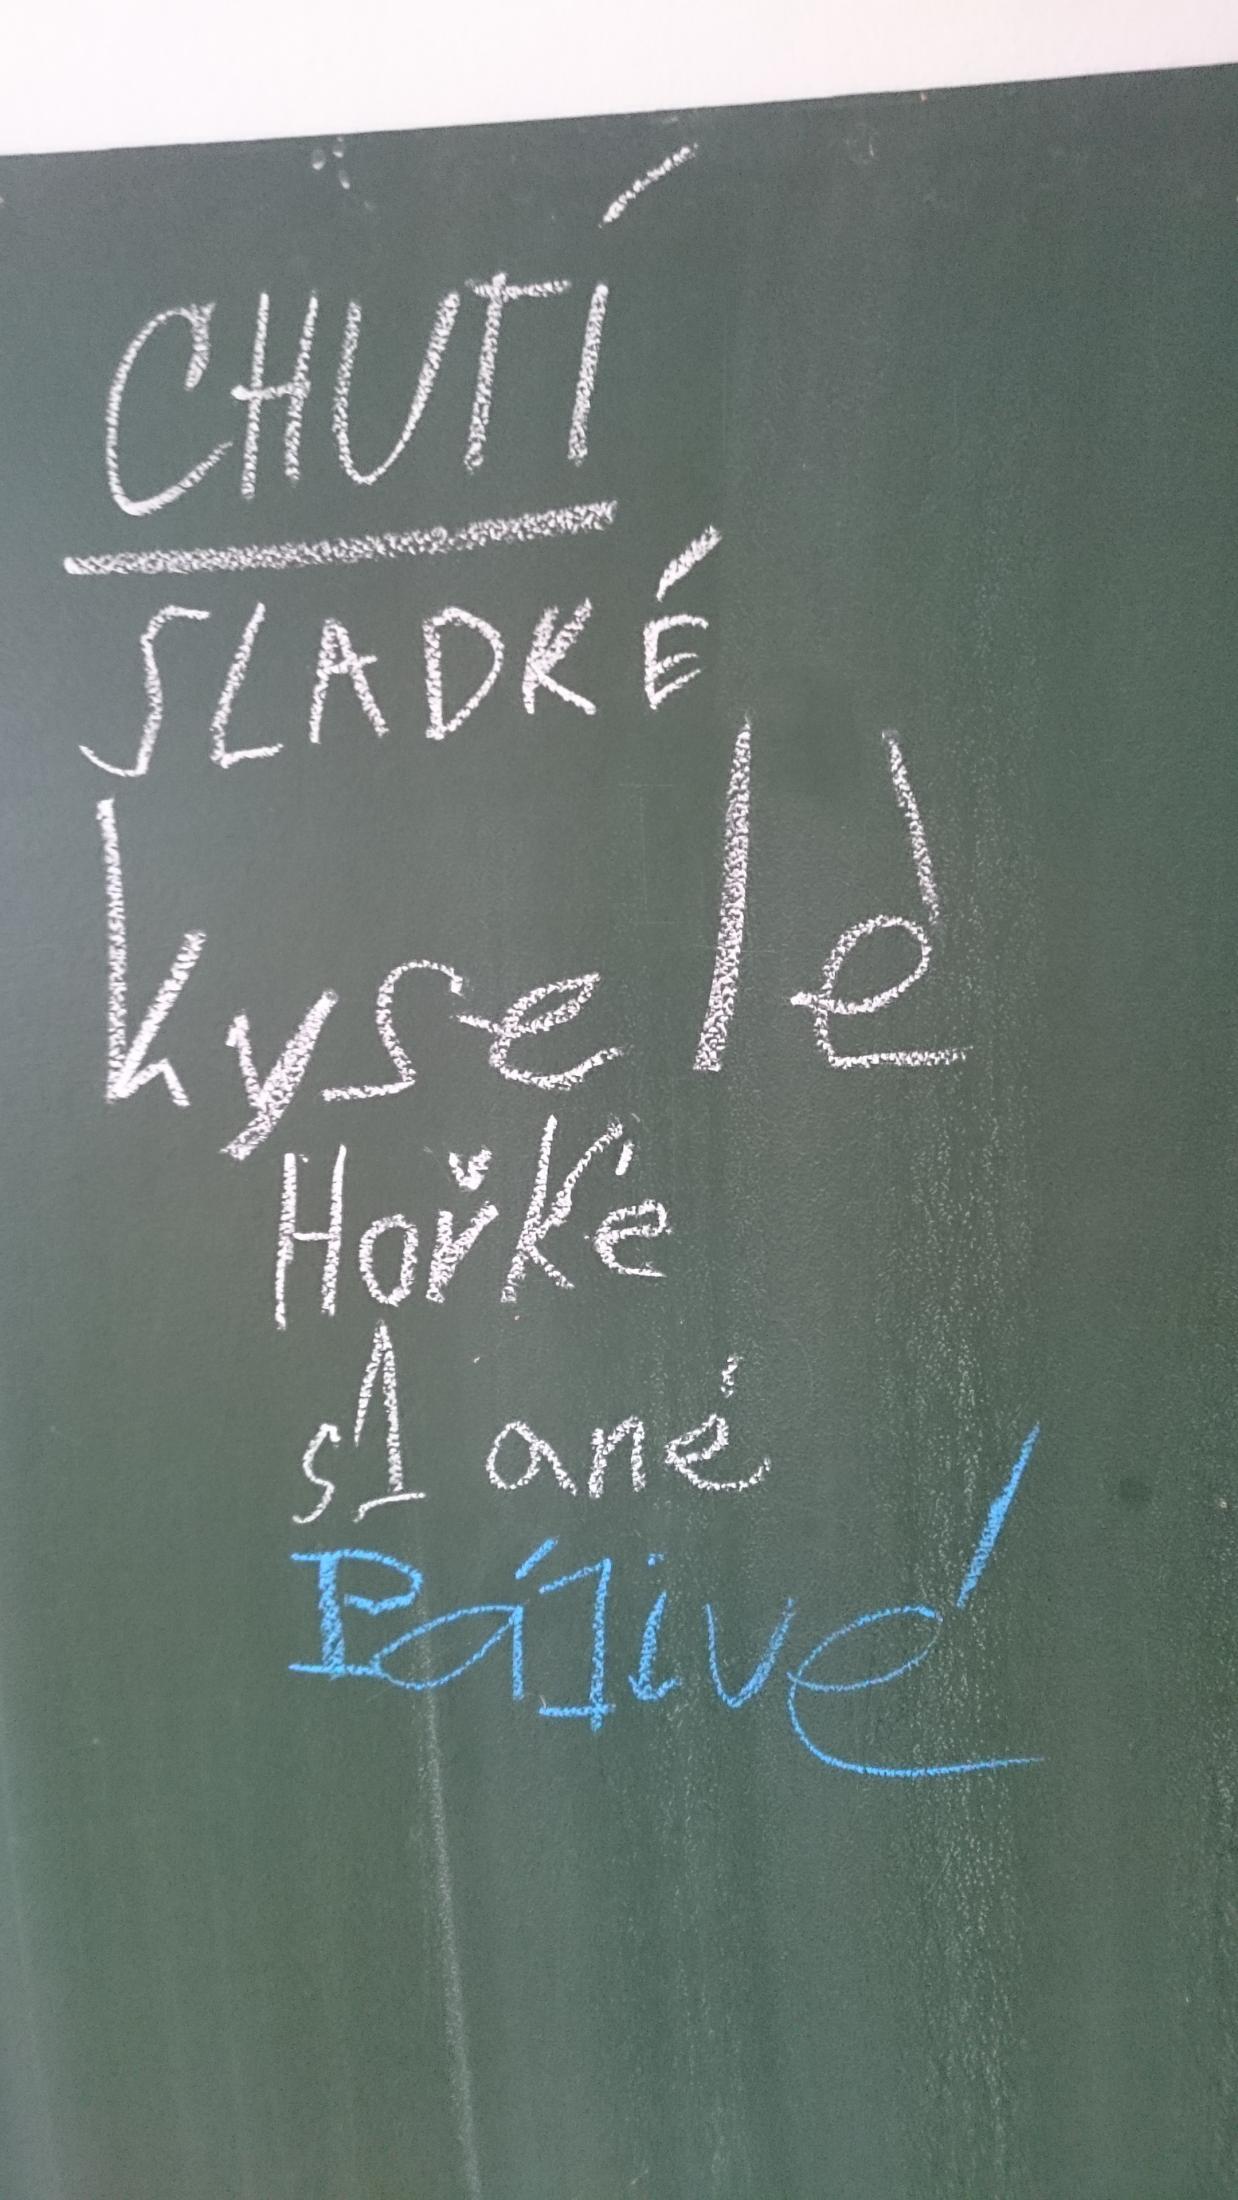 CHUTÍ
SLADKÉ
kyselé
Hořké
slané
Pálivé